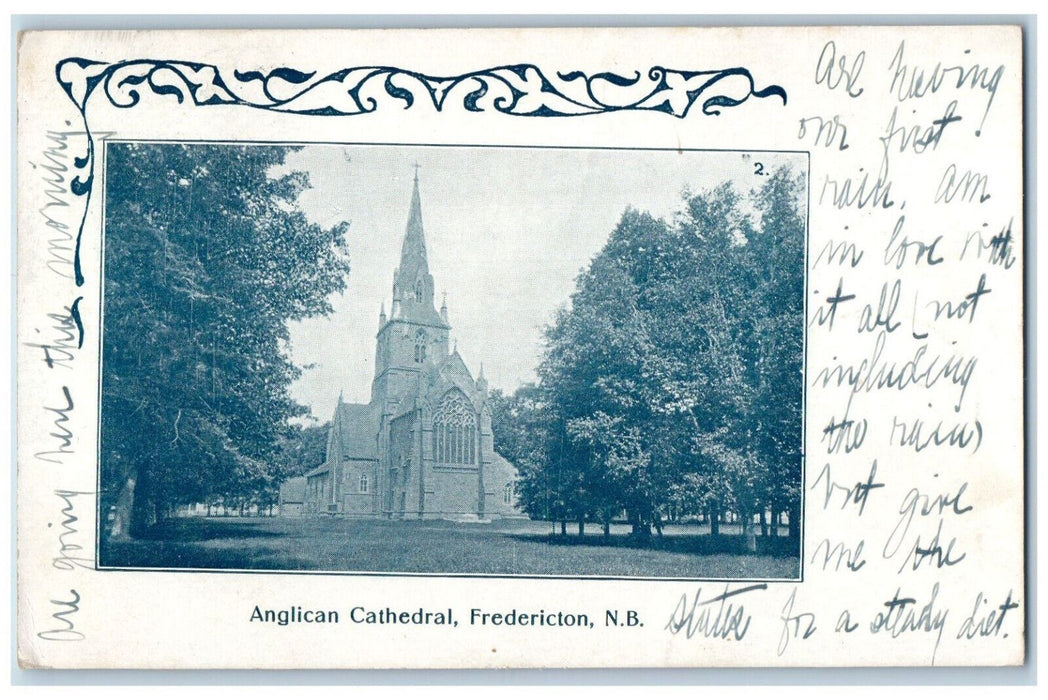 Are having
our first
rain. Am
in love with
it all (not
including
the rain)
but give
me the
States for a steady diet.
Are going here this morning.
2.
Anglican Cathedral, Fredericton, N.B.